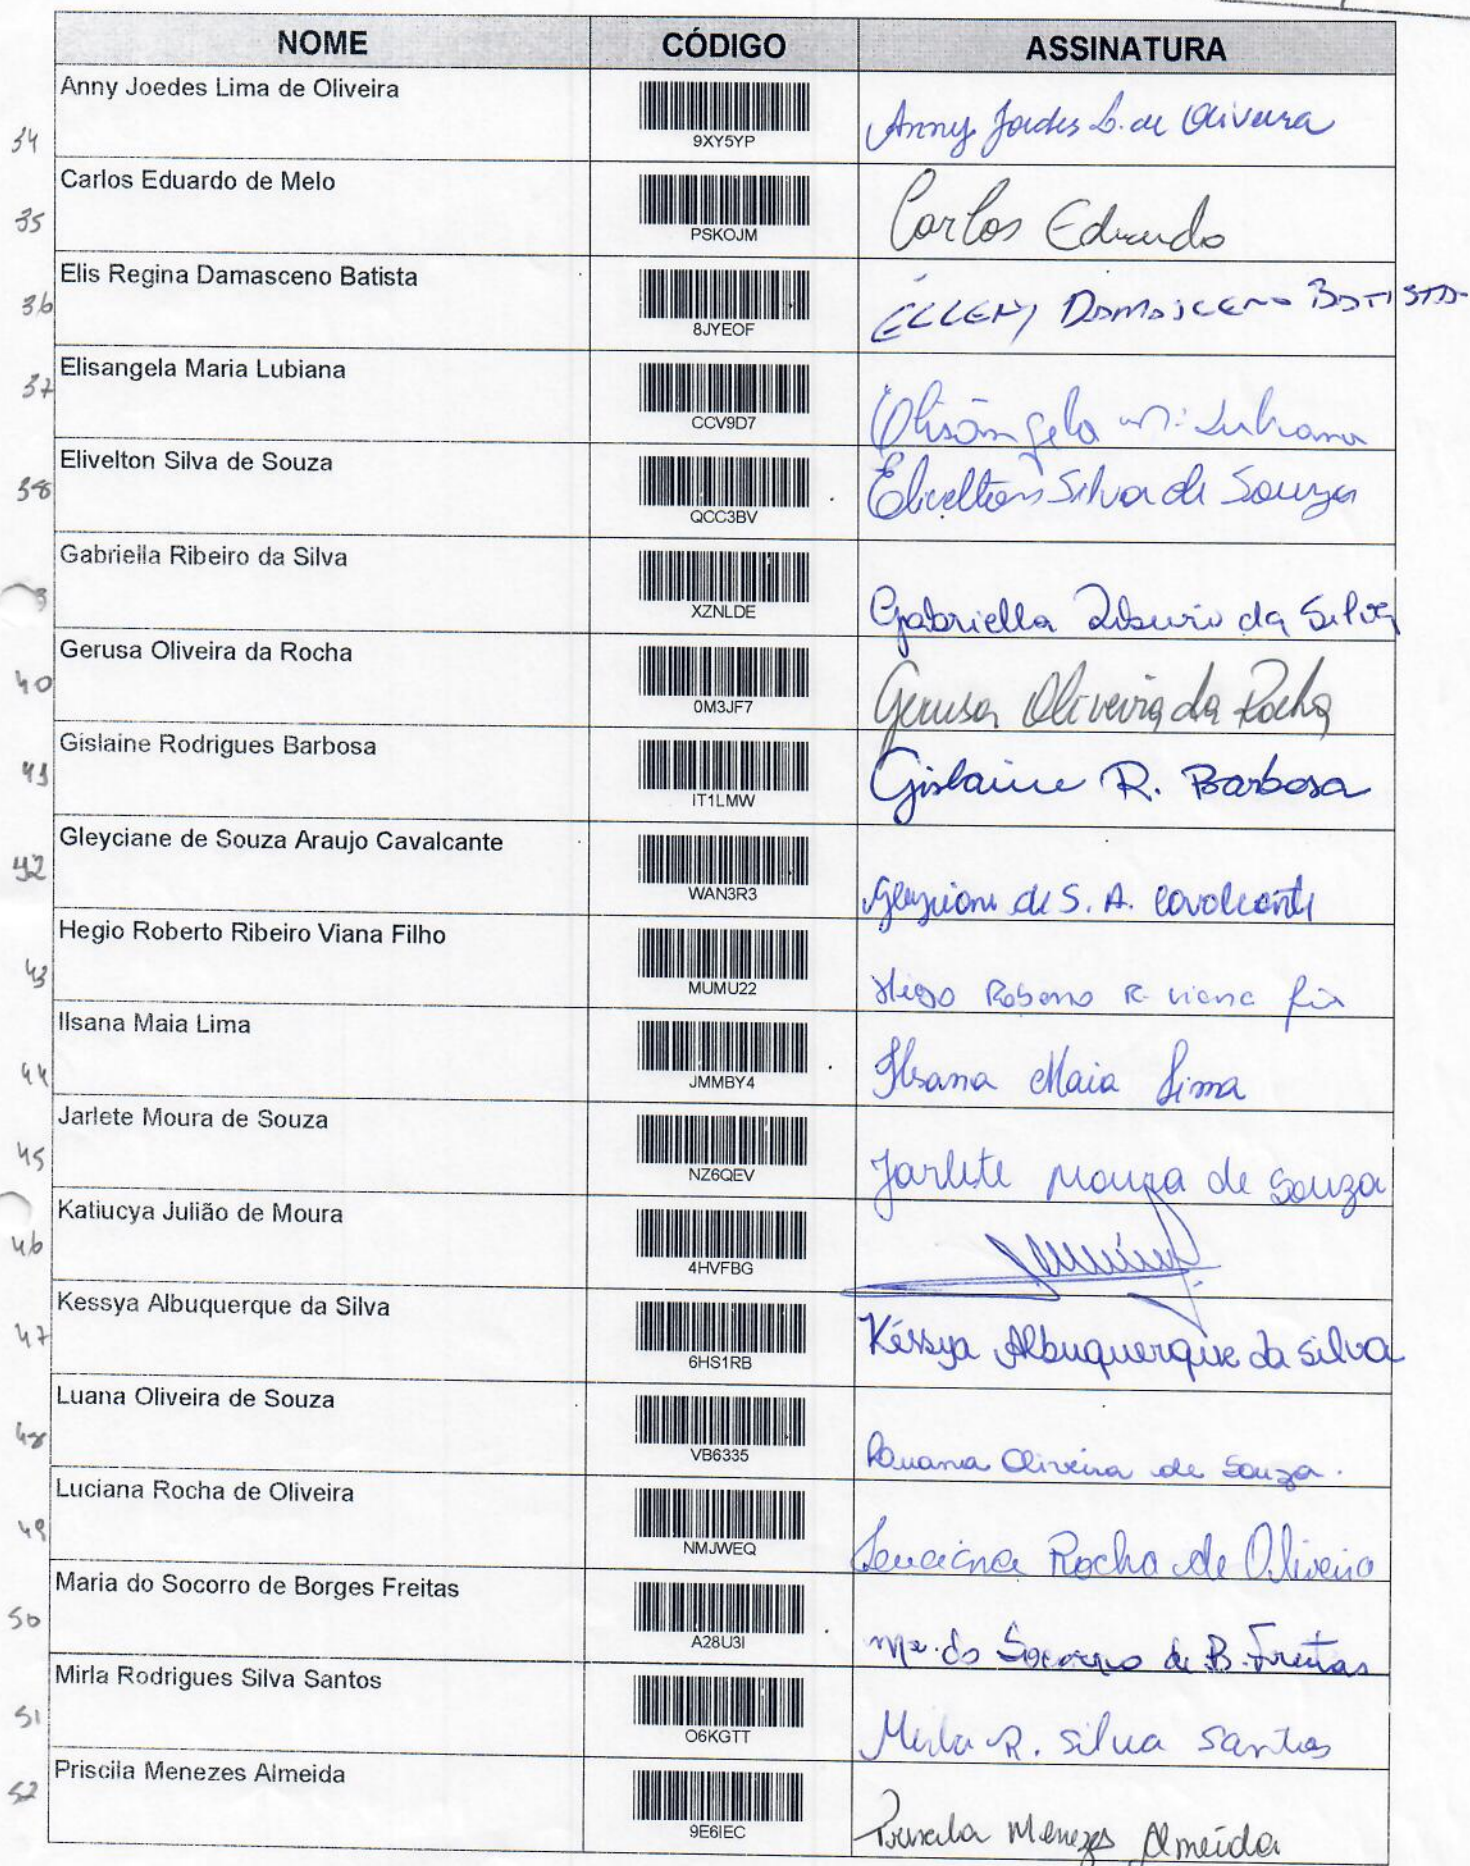 NOME CÓDIGO ASSINATURA
Anny Joedes Lima de Oliveira
34 9XY5YP Anny Joedes L. de Oliveira
Carlos Eduardo de Melo
35 PSKOJM Carlos Eduardo
Elis Regina Damasceno Batista
36 8JYEOF Damasceno Batista
Elisangela Maria Lubiana
37 CCV9D7 Elisângela M. Lubiana
Elivelton Silva de Souza
38 QCC3BV Elivelton Silva de Souza
Gabriella Ribeiro da Silva
XZNLDE Gabriella Ribeiro da Silva
Gerusa Oliveira da Rocha
40 0M3JF7 Gerusa Oliveira da Rocha
Gislaine Rodrigues Barbosa
41 IT1LMW Gislaine R. Barbosa
Gleyciane de Souza Araujo Cavalcante
42 WAN3R3 Gleyciane de S. A. Cavalcante
Hegio Roberto Ribeiro Viana Filho
43 MUMU22 R. Viana
Ilsana Maia Lima
44 JMMBY4 Ilsana Maia Lima
Jarlete Moura de Souza
45 NZ6QEV Jarlete Moura de Souza
Katiucya Julião de Moura
46 4HVFBG
Kessya Albuquerque da Silva
47 6HS1RB Késsya Albuquerque da Silva
Luana Oliveira de Souza
48 VB6335 Luana Oliveira de Souza.
Luciana Rocha de Oliveira
49 NMJWEQ Luciana Rocha de Oliveira
Maria do Socorro de Borges Freitas
50 A28U3I Mª. do Socorro de B. Freitas
Mirla Rodrigues Silva Santos
51 O6KGTT Mirla R. Silva Santos
Priscila Menezes Almeida
52 9E6IEC Priscila Menezes Almeida